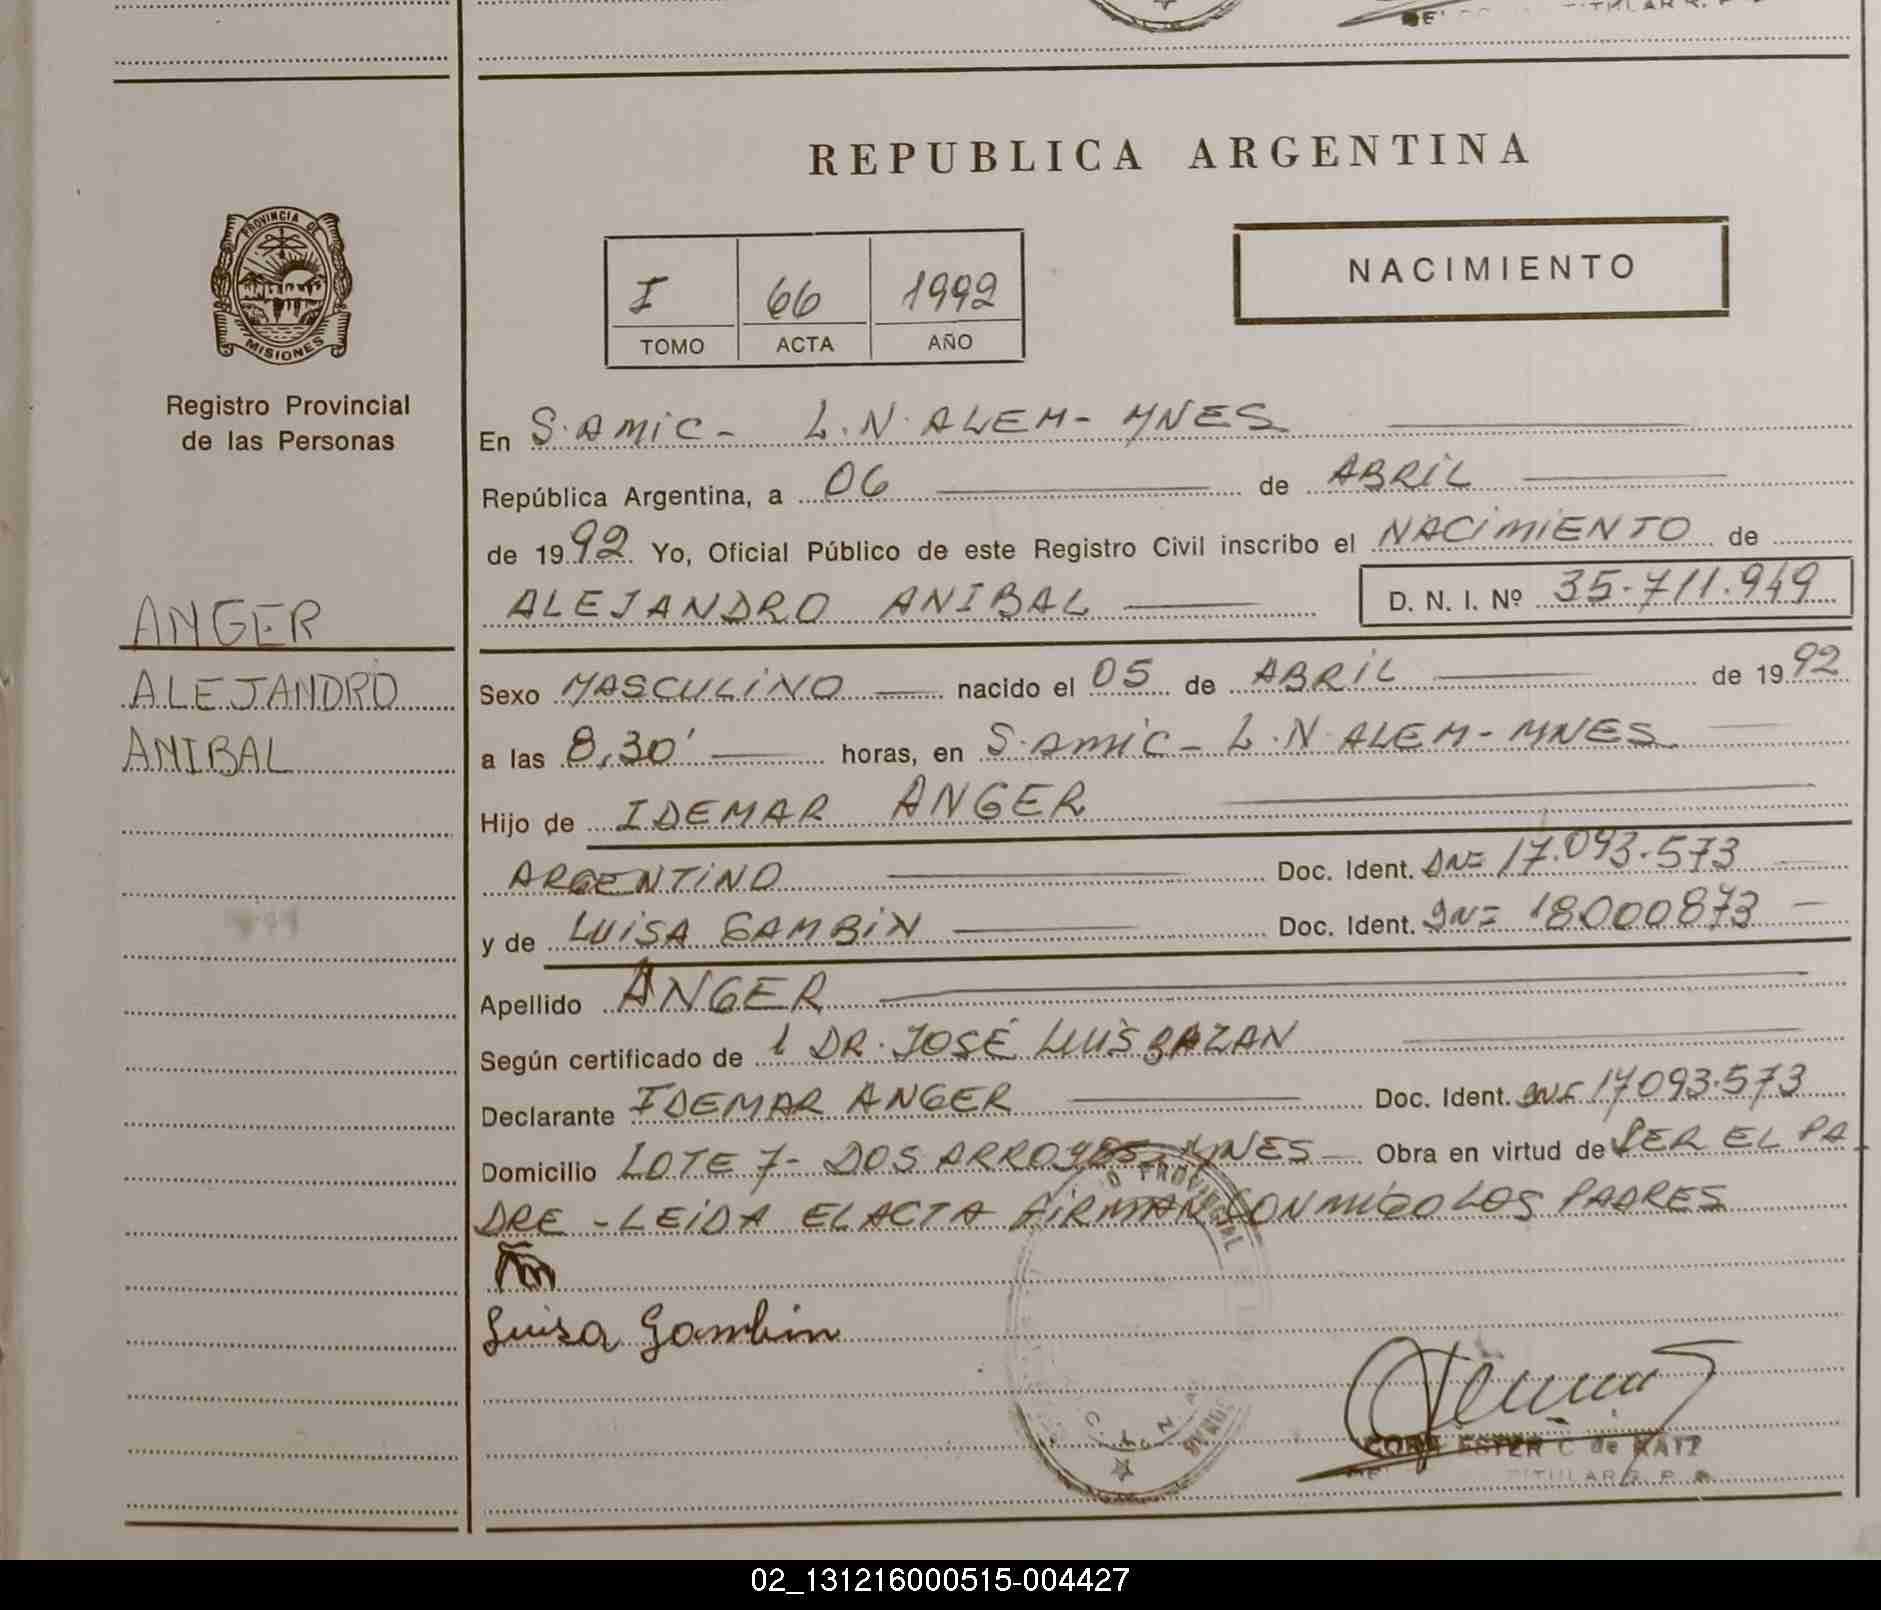 REPUBLICA ARGENTINA
PROVINCIA DE
MISIONES
Registro Provincial
de las Personas
I 66 1992
TOMO ACTA AÑO
NACIMIENTO
En S. AMIC - L.N. ALEM - MNES
República Argentina, a 06 de ABRIL
de 1992. Yo, Oficial Público de este Registro Civil inscribo el NACIMIENTO de
ALEJANDRO ANIBAL D. N. I. Nº 35.711.949
ANGER
ALEJANDRO
ANIBAL
Sexo MASCULINO nacido el 05 de ABRIL de 1992
a las 8,30' horas, en S. AMIC - L.N. ALEM - MNES
Hijo de IDEMAR ANGER
ARGENTINO Doc. Ident. DN= 17.093.573
y de LUISA GAMBIN Doc. Ident. DN= 18000873
Apellido ANGER
Según certificado de 1 DR. JOSÉ LUIS BAZAN
Declarante IDEMAR ANGER Doc. Ident. 17093.573
Domicilio LOTE 7 - DOS ARROYOS MNES - Obra en virtud de SER EL PA
DRE - LEIDA EL ACTA FIRMAN CONMIGO LOS PADRES
Luisa Gambin
ESTER C de RAIZ
TITULAR
02_131216000515-004427